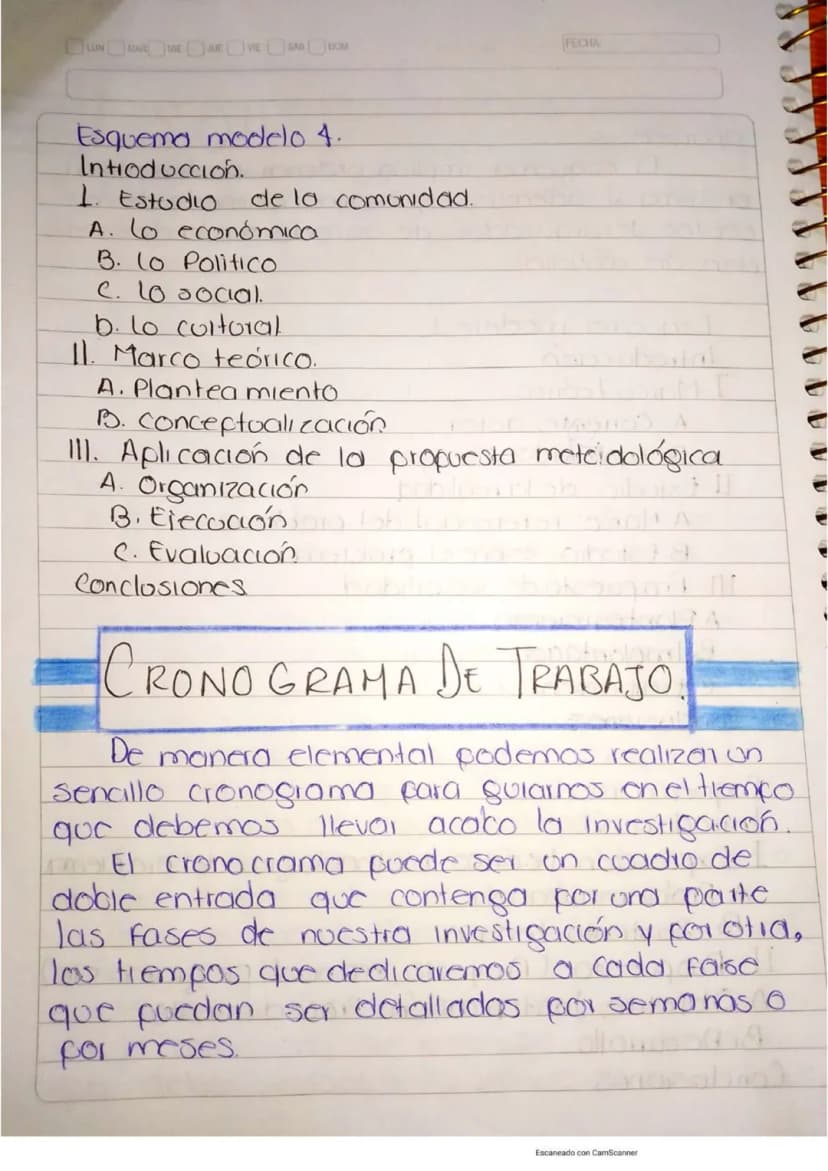 LUN MAR MIE JUE VIE SAB DOM
FECHA:
Esquema modelo 4.
Introducción.
I. Estudio de la comunidad.
A. lo económica
B. lo Politico
C. lo social.
D. lo cultural
II. Marco teórico.
A. Planteamiento
B. conceptualización
III. Aplicación de la propuesta metoidológica
A. Organización
B. Ejecución
C. Evaluación
Conclusiones
CRONOGRAMA DE TRABAJO.
De manera elemental podemos realizar un
sencillo cronograma para guiarnos en el tiempo
que debemos llevar acabo la investigación.
El cronocrama puede ser un cuadro de
doble entrada que contenga por una parte
las fases de nuestra investigación y por otra,
los tiempos que dedicaremos a cada fase
que puedan ser detallados por semanas o
por meses.
Escaneado con CamScanner